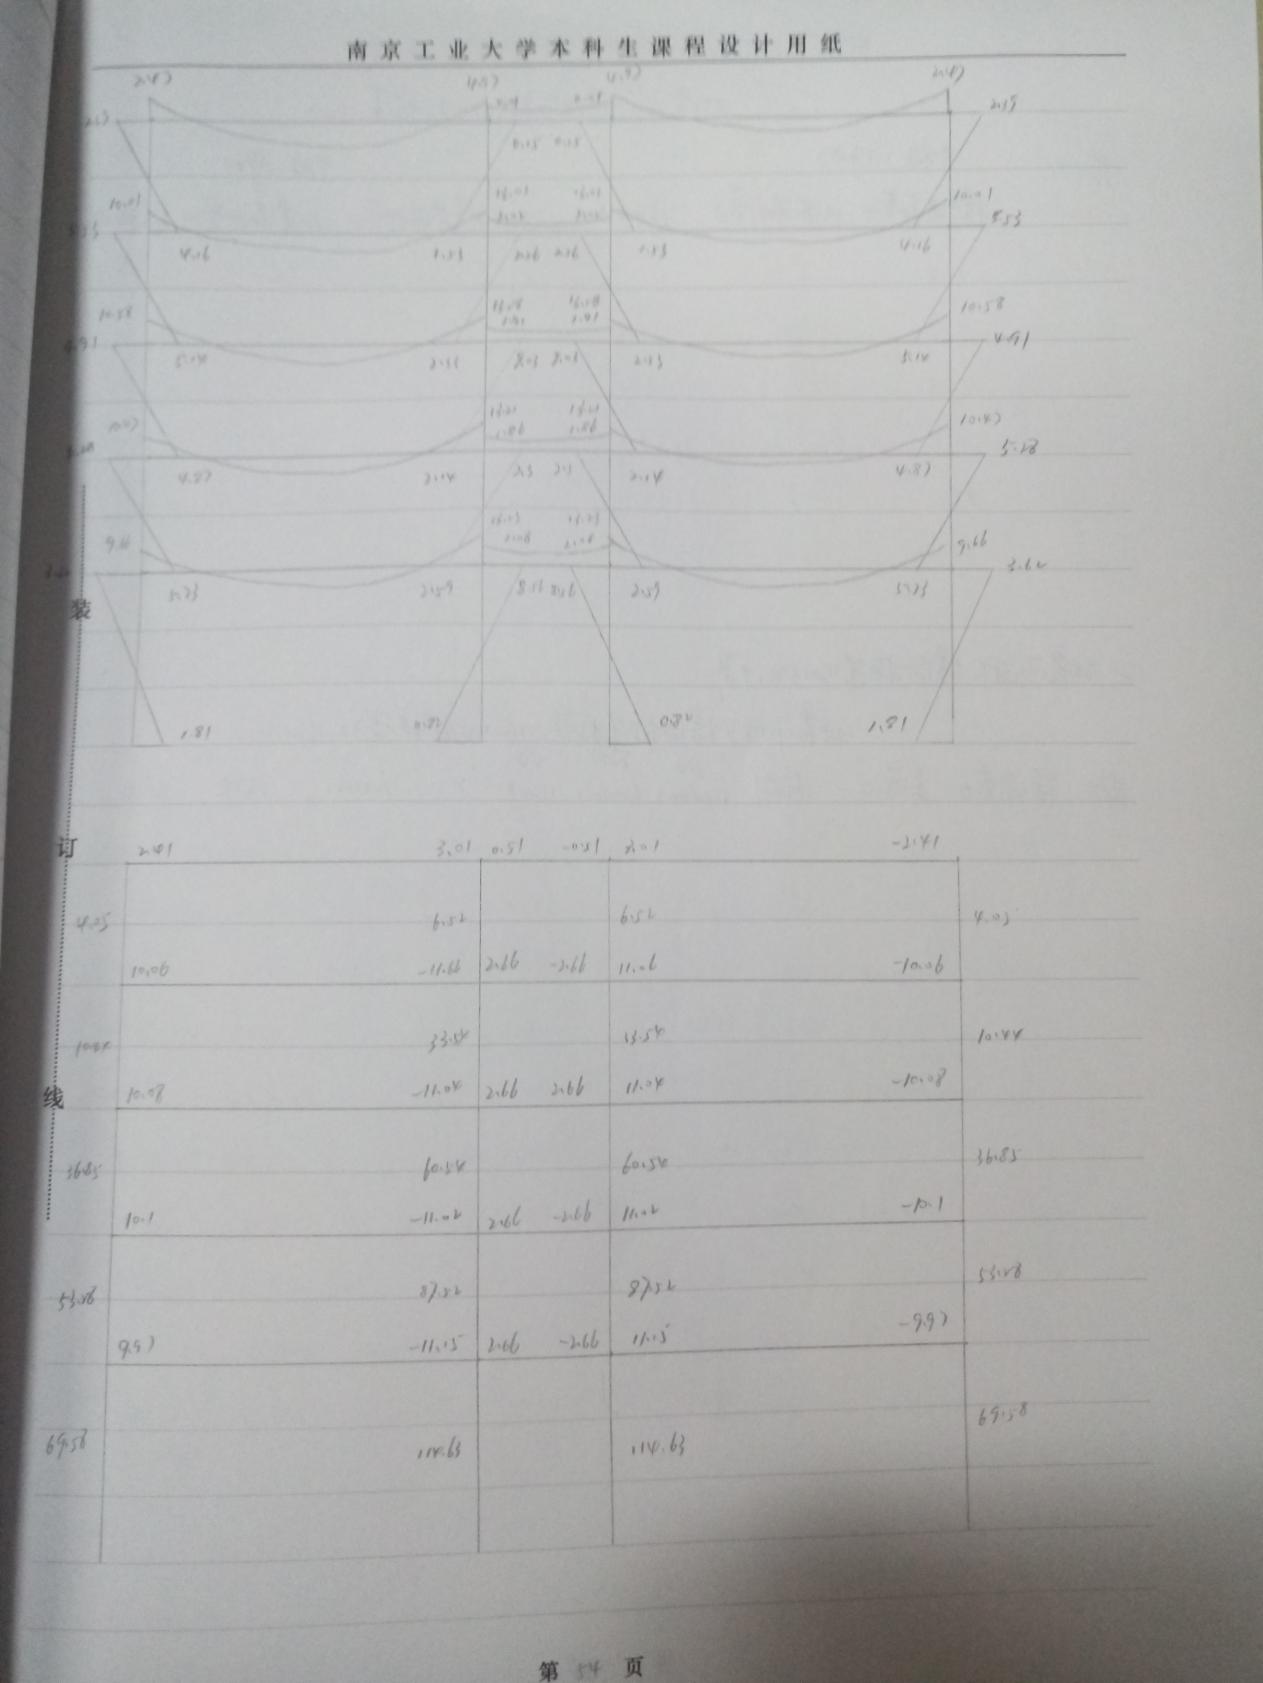 南京工业大学本科生课程设计用纸
2.47 2.47
0.15 0.15
10.01 10.01
5.53
4.16 1.53 1.53 4.16
10.58 10.58
1.91 1.91
4.91 4.91
5.14 2.33 8.03 8.03 2.33 5.14
13.21 13.21
10.47 1.86 1.86 10.47
5.28
4.87 2.14 2.3 2.3 2.14 4.87
13.23 13.23
9.66 2.08 2.08 9.66
3.62
5.23 2.59 8.56 8.56 2.59 5.23
装
1.81 0.82 0.82 1.81
订
2.41 3.01 0.51 -0.51 3.01 -2.41
4.05 6.52 6.52 4.05
10.06 -11.66 2.66 -2.66 11.06 -10.06
10.44 33.54 33.54 10.44
线
10.08 -11.04 2.66 2.66 11.04 -10.08
36.85 60.54 60.54 36.85
10.1 -11.02 2.66 -2.66 11.02 -10.1
53.28 87.52 87.52 53.28
9.97 -11.15 2.66 -2.66 11.15 -9.97
69.58 114.63 114.63 69.58
第 54 页